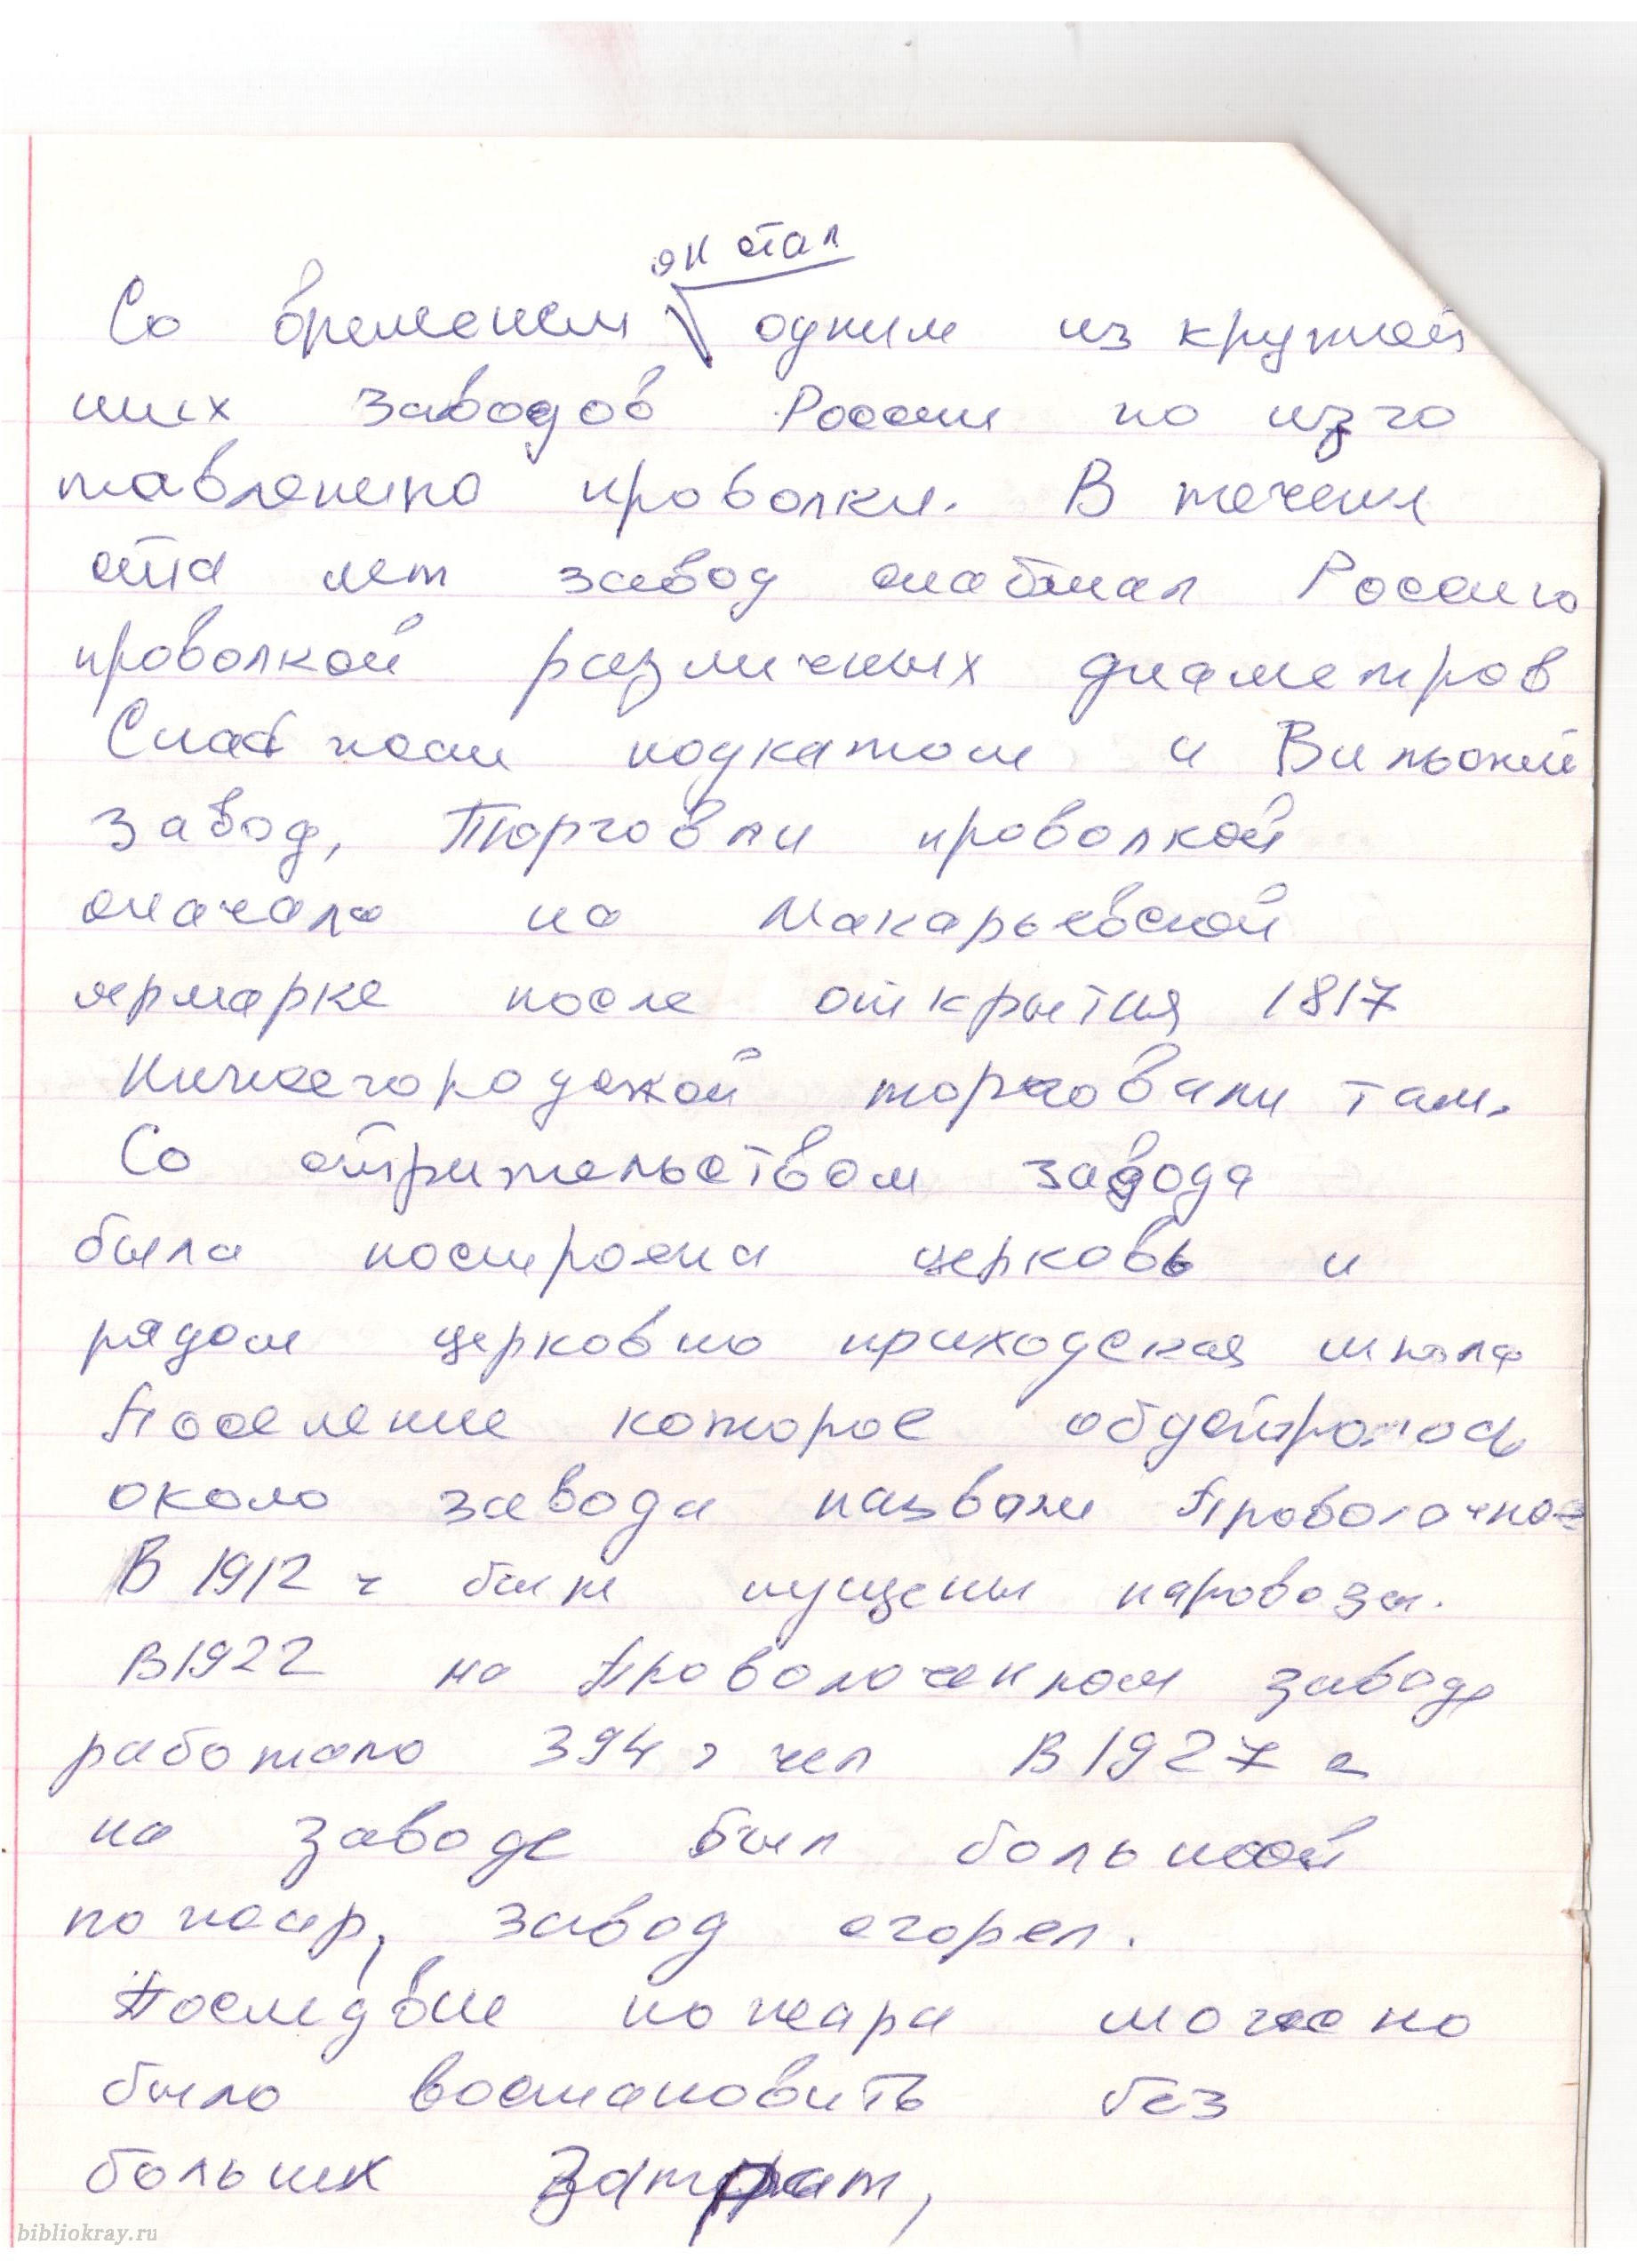 он стал
Со временем одним из крупней
ших заводов России по изго
тавлению проволки. В течени
ста лет завод снабжал Россию
проволкой различных диаметров
Снабжали подкатом и Вильский
завод, Торговли проволкой
сначала на Макарьевской
ярмарке после открытия 1817
Нижегородской торговали там.
Со стрительством завода
была построена церковь и
рядом церковно приходская школа
Поселение которое обдейтролось
около завода назвали Проволочное
В 1912 г были пущены паровозы.
В 1922 на Проволоченном заводе
работало 394 чел В 1927 г
на заводе был большой
пожар, завод сгорел.
Последвие пожара можно
было востановить без
больших затрат,
bibliokray.ru